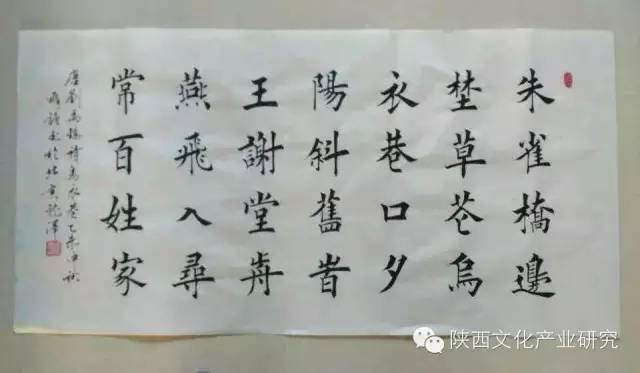 朱雀橋邊
埜草芲烏
衣巷口夕
陽斜舊旹
王謝堂歬
燕飛入尋
常百姓家
唐劉禹錫詩烏衣巷乙未仲秋
書於北京龍澤
陕西文化产业研究